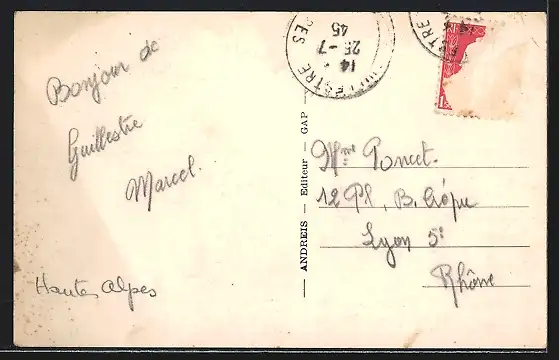 Bonjour de
Guillestre
Marcel.
Hautes Alpes
ANDREIS — Editeur — GAP
14
25-7
45
Mme Poncet.
12 Pl. B. Crépu
Lyon 5e
Rhône